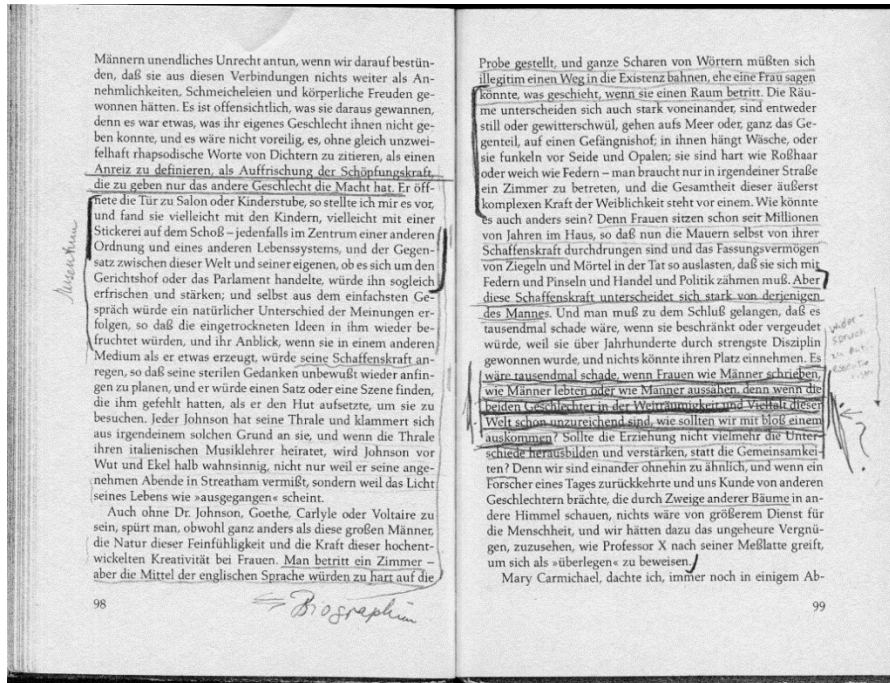 Männern unendliches Unrecht antun, wenn wir darauf bestün-
den, daß sie aus diesen Verbindungen nichts weiter als An-
nehmlichkeiten, Schmeicheleien und körperliche Freuden ge-
wonnen hätten. Es ist offensichtlich, was sie daraus gewannen,
denn es war etwas, was ihr eigenes Geschlecht ihnen nicht ge-
ben konnte, und es wäre nicht voreilig, es, ohne gleich unzwei-
felhaft rhapsodische Worte von Dichtern zu zitieren, als einen
Anreiz zu definieren, als Auffrischung der Schöpfungskraft,
die zu geben nur das andere Geschlecht die Macht hat. Er öff-
nete die Tür zu Salon oder Kinderstube, so stellte ich mir es vor,
und fand sie vielleicht mit den Kindern, vielleicht mit einer
Stickerei auf dem Schoß – jedenfalls im Zentrum einer anderen
Ordnung und eines anderen Lebenssystems, und der Gegen-
satz zwischen dieser Welt und seiner eigenen, ob es sich um den
Gerichtshof oder das Parlament handelte, würde ihn sogleich
erfrischen und stärken; und selbst aus dem einfachsten Ge-
spräch würde ein natürlicher Unterschied der Meinungen er-
folgen, so daß die eingetrockneten Ideen in ihm wieder be-
fruchtet würden, und ihr Anblick, wenn sie in einem anderen
Medium als er etwas erzeugt, würde seine Schaffenskraft an-
regen, so daß seine sterilen Gedanken unbewußt wieder anfin-
gen zu planen, und er würde einen Satz oder eine Szene finden,
die ihm gefehlt hatten, als er den Hut aufsetzte, um sie zu
besuchen. Jeder Johnson hat seine Thrale und klammert sich
aus irgendeinem solchen Grund an sie, und wenn die Thrale
ihren italienischen Musiklehrer heiratet, wird Johnson vor
Wut und Ekel halb wahnsinnig, nicht nur weil er seine ange-
nehmen Abende in Streatham vermißt, sondern weil das Licht
seines Lebens wie »ausgegangen« scheint.
Auch ohne Dr. Johnson, Goethe, Carlyle oder Voltaire zu
sein, spürt man, obwohl ganz anders als diese großen Männer,
die Natur dieser Feinfühligkeit und die Kraft dieser hochent-
wickelten Kreativität bei Frauen. Man betritt ein Zimmer –
aber die Mittel der englischen Sprache würden zu hart auf die
98
Probe gestellt, und ganze Scharen von Wörtern müßten sich
illegitim einen Weg in die Existenz bahnen, ehe eine Frau sagen
könnte, was geschieht, wenn sie einen Raum betritt. Die Räu-
me unterscheiden sich auch stark voneinander, sind entweder
still oder gewitterschwül, gehen aufs Meer oder, ganz das Ge-
genteil, auf einen Gefängnishof; in ihnen hängt Wäsche, oder
sie funkeln vor Seide und Opalen; sie sind hart wie Roßhaar
oder weich wie Federn – man braucht nur in irgendeiner Straße
ein Zimmer zu betreten, und die Gesamtheit dieser äußerst
komplexen Kraft der Weiblichkeit steht vor einem. Wie könnte
es auch anders sein? Denn Frauen sitzen schon seit Millionen
von Jahren im Haus, so daß nun die Mauern selbst von ihrer
Schaffenskraft durchdrungen sind und das Fassungsvermögen
von Ziegeln und Mörtel in der Tat so auslasten, daß sie sich mit
Federn und Pinseln und Handel und Politik zähmen muß. Aber
diese Schaffenskraft unterscheidet sich stark von derjenigen
des Mannes. Und man muß zu dem Schluß gelangen, daß es
tausendmal schade wäre, wenn sie beschränkt oder vergeudet
würde, weil sie über Jahrhunderte durch strengste Disziplin
gewonnen wurde, und nichts könnte ihren Platz einnehmen. Es
wäre tausendmal schade, wenn Frauen wie Männer schrieben,
wie Männer lebten oder wie Männer aussahen, denn wenn die
beiden Geschlechter in der Weiträumigkeit und Vielfalt dieser
Welt schon unzureichend sind, wie sollten wir mit bloß einem
auskommen? Sollte die Erziehung nicht vielmehr die Unter-
schiede herausbilden und verstärken, statt die Gemeinsamkei-
ten? Denn wir sind einander ohnehin zu ähnlich, und wenn ein
Forscher eines Tages zurückkehrte und uns Kunde von anderen
Geschlechtern brächte, die durch Zweige anderer Bäume in an-
dere Himmel schauen, nichts wäre von größerem Dienst für
die Menschheit, und wir hätten dazu das ungeheure Vergnü-
gen, zuzusehen, wie Professor X nach seiner Meßlatte greift,
um sich als »überlegen« zu beweisen.
Mary Carmichael, dachte ich, immer noch in einigem Ab-
99
wider-
spruch
?